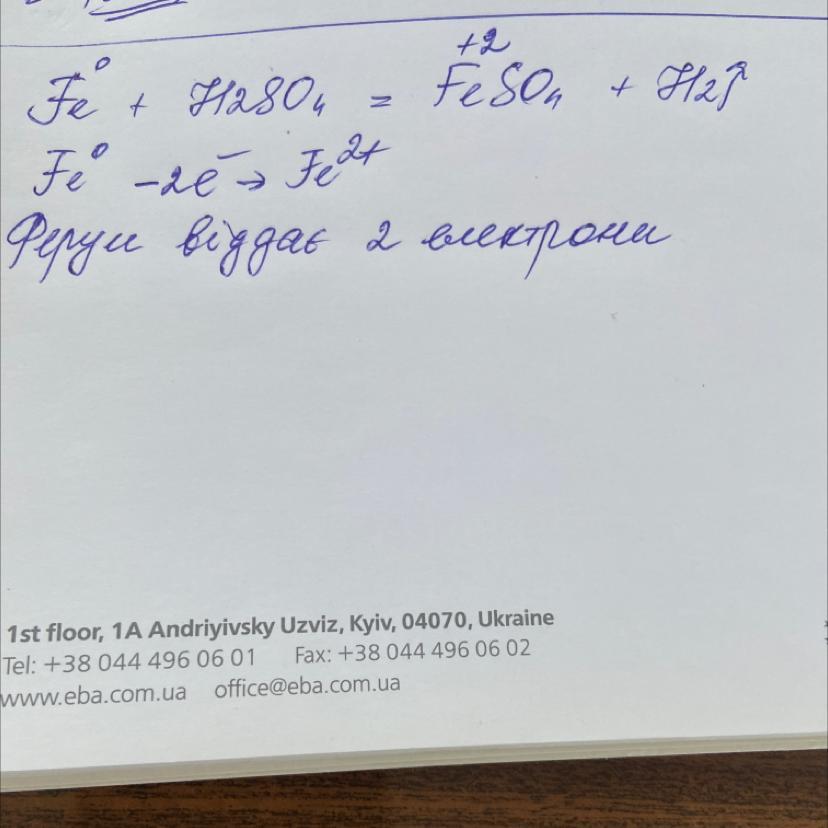 Fe⁰ + H2SO4 = Fe⁺²SO4 + H2↑
Fe⁰ -2e⁻ → Fe²⁺
Ферум віддає 2 електрони
1st floor, 1A Andriyivsky Uzviz, Kyiv, 04070, Ukraine
Tel: +38 044 496 06 01 Fax: +38 044 496 06 02
www.eba.com.ua office@eba.com.ua